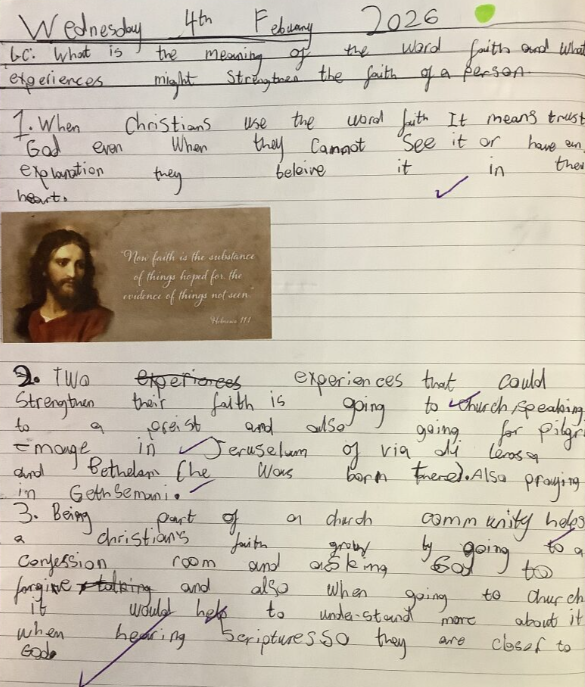 Wednesday 4th Febuary 2026
L.C: What is the meaning of the word faith and what
experiences might strengthen the faith of a person.
1. When Christians use the word faith It means trust
God even When they Cannot See it or have an
explanation they beleive it in their
heart.
"Now faith is the substance
of things hoped for, the
evidence of things not seen"
Hebrews 11:1
2. Two experiences experiences that could
Strengthen their faith is going to church, speaking
to a preist and also going for pilgri
mage in Jeruselum of via
and Bethelam (he was born there). Also praying
in Gethsemani.
3. Being part of a church community helps
a christians faith grow by going to a
Confession room and asking God to
forgive talking and also when going to church
it would help to understand more about it
when hearing ScripturesSo they are closer to
God.